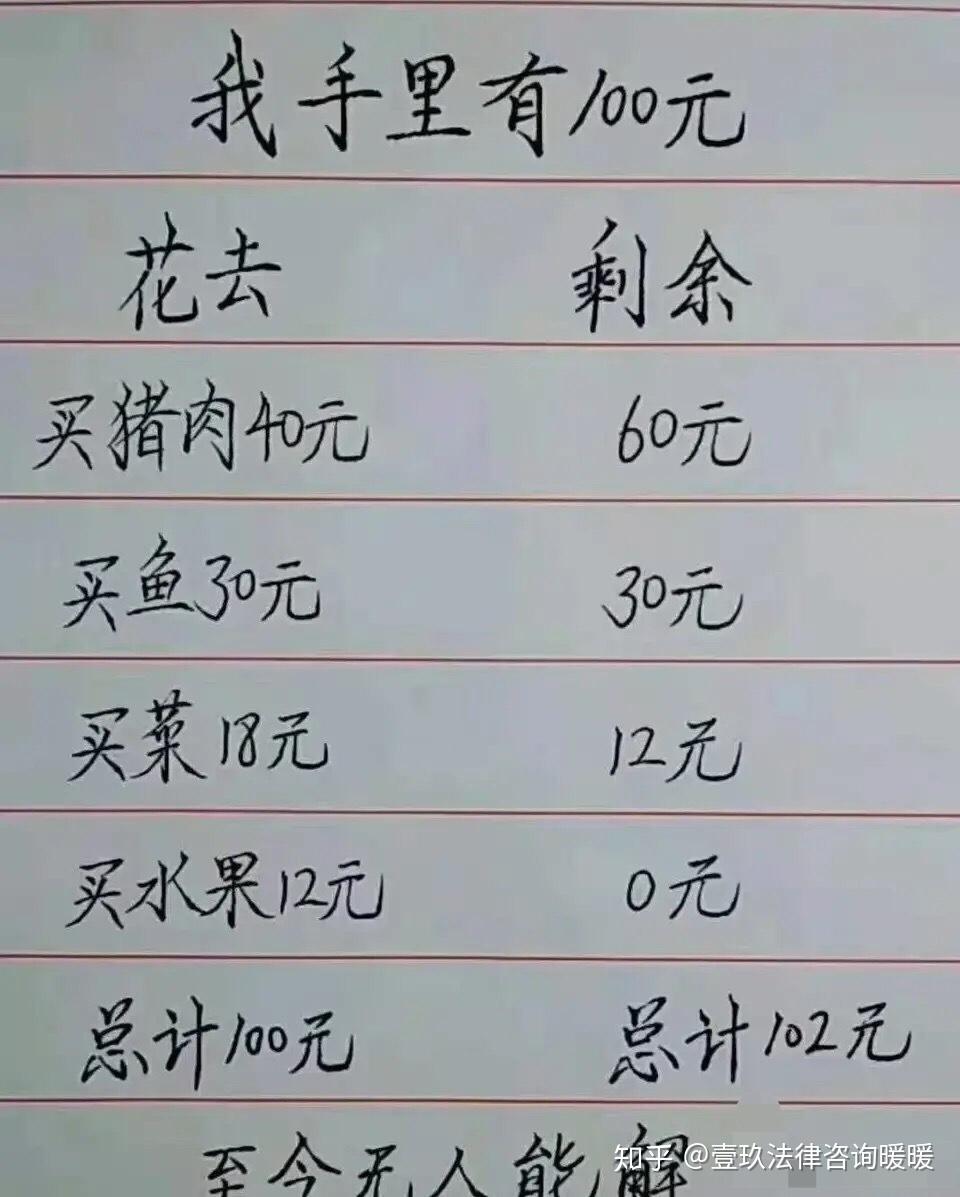 我手里有100元
花去 剩余
买猪肉40元 60元
买鱼30元 30元
买菜18元 12元
买水果12元 0元
总计100元 总计102元
至今无人能解
知乎 @壹玖法律咨询暖暖